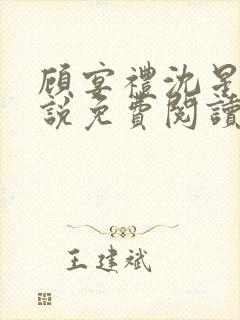 顧宴禮沈星
說免費閱讀
王建斌